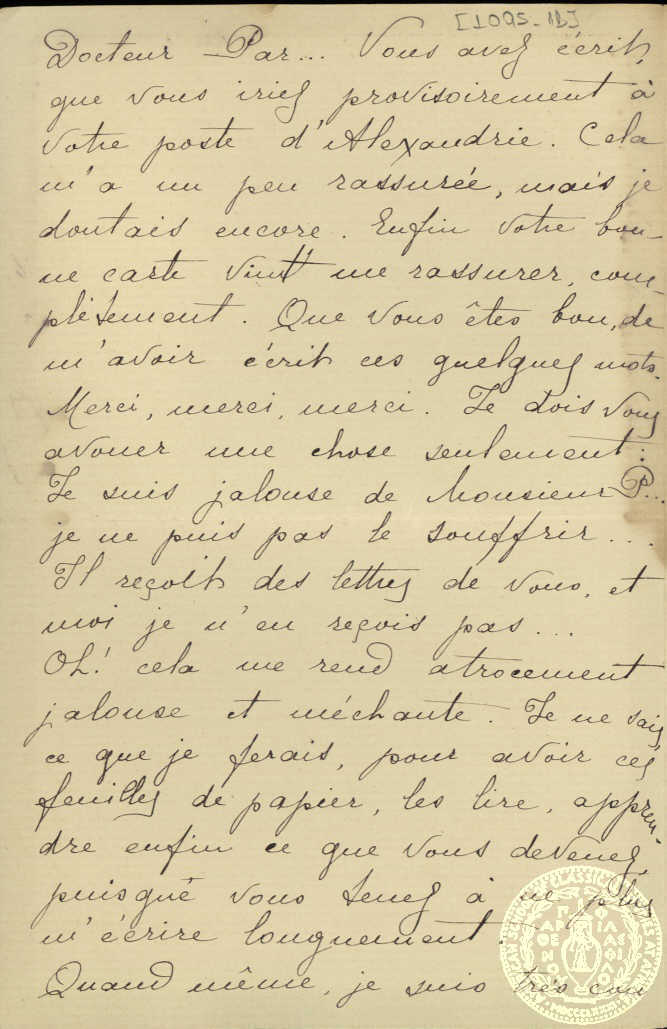 [1095-11]
Docteur Par... Vous avez écrit,
que vous iriez provisoirement à
votre poste d'Alexandrie. Cela
m'a un peu rassurée, mais je
doutais encore. Enfin votre bon-
ne carte vint me rassurer, com-
plètement. Que vous êtes bon, de
m'avoir écrit ces quelques mots.
Merci, merci, merci. Je dois vous
avouer une chose seulement:
Je suis jalouse de Monsieur P...
je ne puis pas le souffrir...
Il reçoit des lettres de vous, et
moi je n'en reçois pas...
Oh! cela me rend atrocement
jalouse et méchante. Je ne sais
ce que je ferais, pour avoir ces
feuilles de papier, les lire, appren-
dre enfin ce que vous devenez,
puisque vous tenez à ne plus
m'écrire longuement.
Quand même, je suis très con